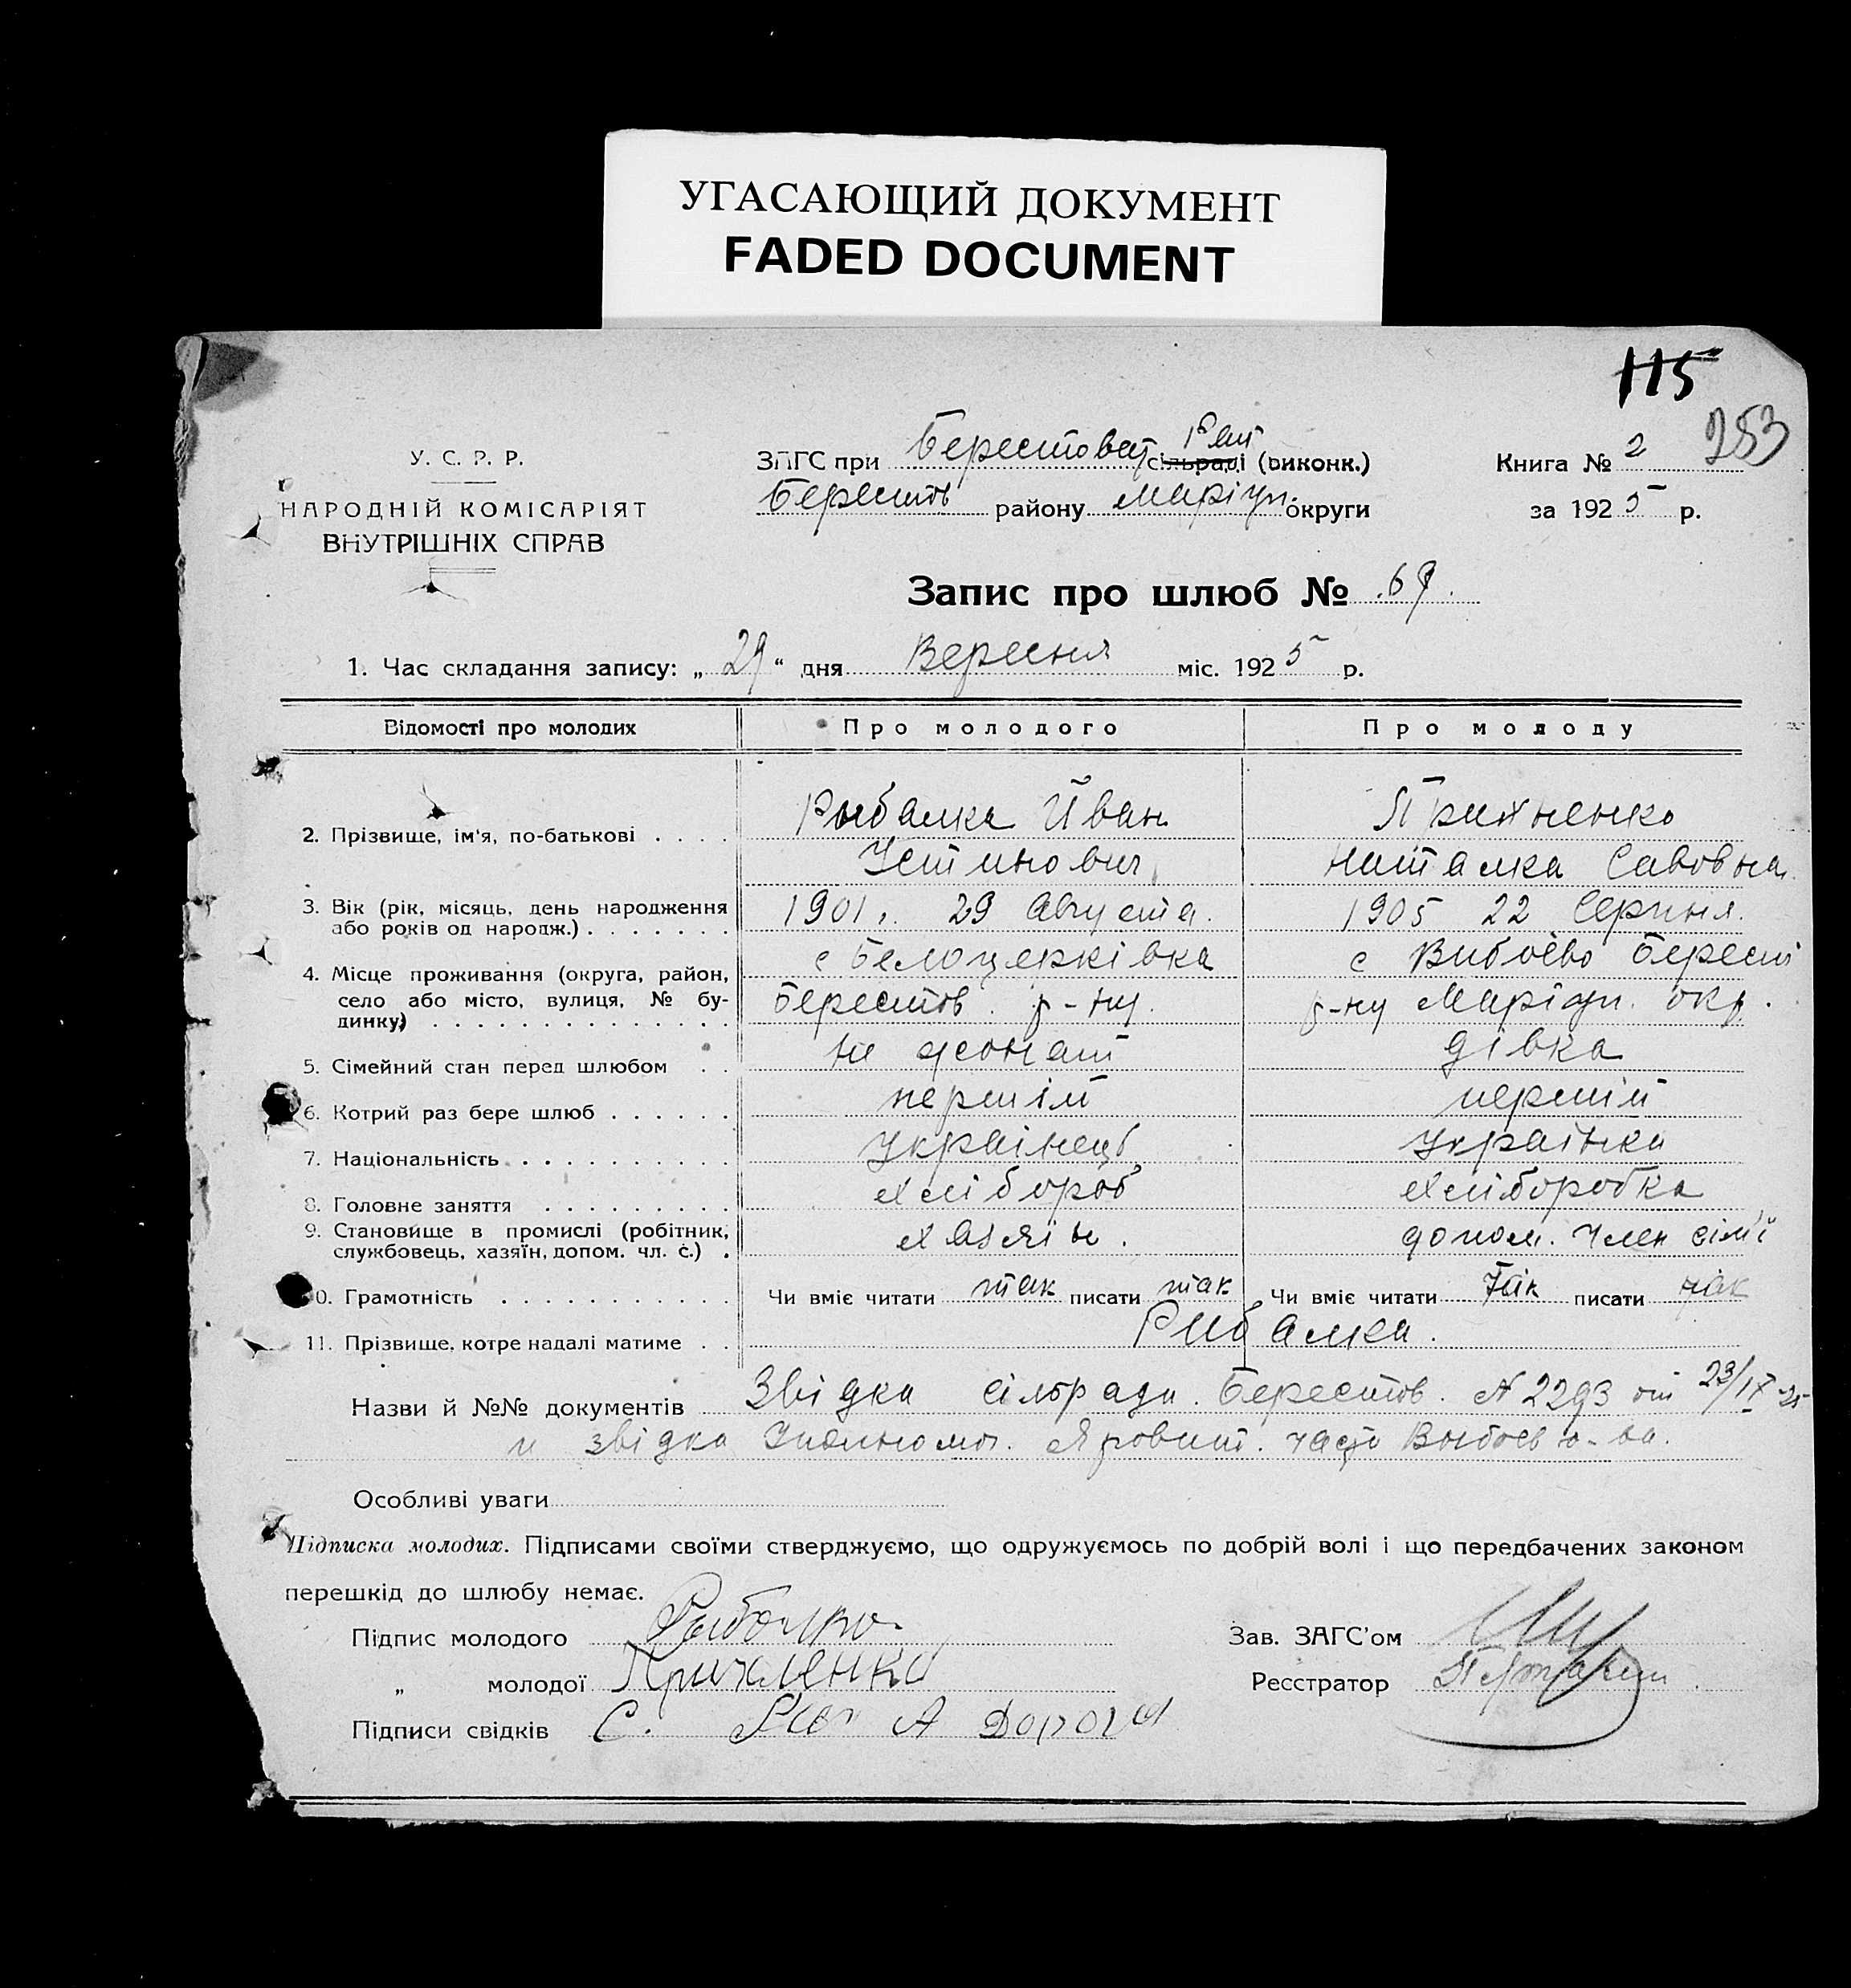 УГАСАЮЩИЙ ДОКУМЕНТ
FADED DOCUMENT
115
253
У. С. Р. Р.
НАРОДНІЙ КОМІСАРІЯТ
ВНУТРІШНІХ СПРАВ
ЗАГС при Берестоват сільраді (виконк.)
Берестов району Маріуп. округи
Книга № 2
за 1925 р.
Запис про шлюб № 69.
1. Час складання запису: „ 29 “ дня Вересня міс. 1925 р.
Відомості про молодих Про молодого Про молоду
2. Прізвище, ім'я, по-батькові . . . . Рыбалка Йван
Устинович
Наталка Савовна
3. Вік (рік, місяць, день народження
або років од народж.) . . . . . . . 1901. 29 Августа. 1905 22 Серпня.
4. Місце проживання (округа, район,
село або місто, вулиця, № бу-
динку) . . . . . . . . . . . . . .
с Белоцерківка
Берестов. р-ну.
с Вибоєво Берест
р-ну Маріуп. окр.
5. Сімейний стан перед шлюбом . . не жонат дівка
6. Котрий раз бере шлюб . . . . . . перший перший
7. Національність . . . . . . . . . . Українець Українка
8. Головне заняття . . . . . . . . . Хлібороб Хлiборобка
9. Становище в промислі (робітник,
службовець, хазяїн, допом. чл. с.) . Хазяін. допом. член сім'ї
10. Грамотність . . . . . . . . . . . Чи вміє читати так писати так Чи вміє читати так писати так
11. Прізвище, котре надалі матиме . . Рибалка.
Назви й №№ документів Звідка сільради. Берестов. № 2293 от 23/IX-25
и звідка Яровит. часть
Особливі уваги
Підписка молодих. Підписами своїми стверджуємо, що одружуємось по добрій волі і що передбачених законом
перешкід до шлюбу немає.
Підпис молодого Рыбалка
„ молодої
Підписи свідків С. А Дорога
Зав. ЗАГС'ом
Реєстратор